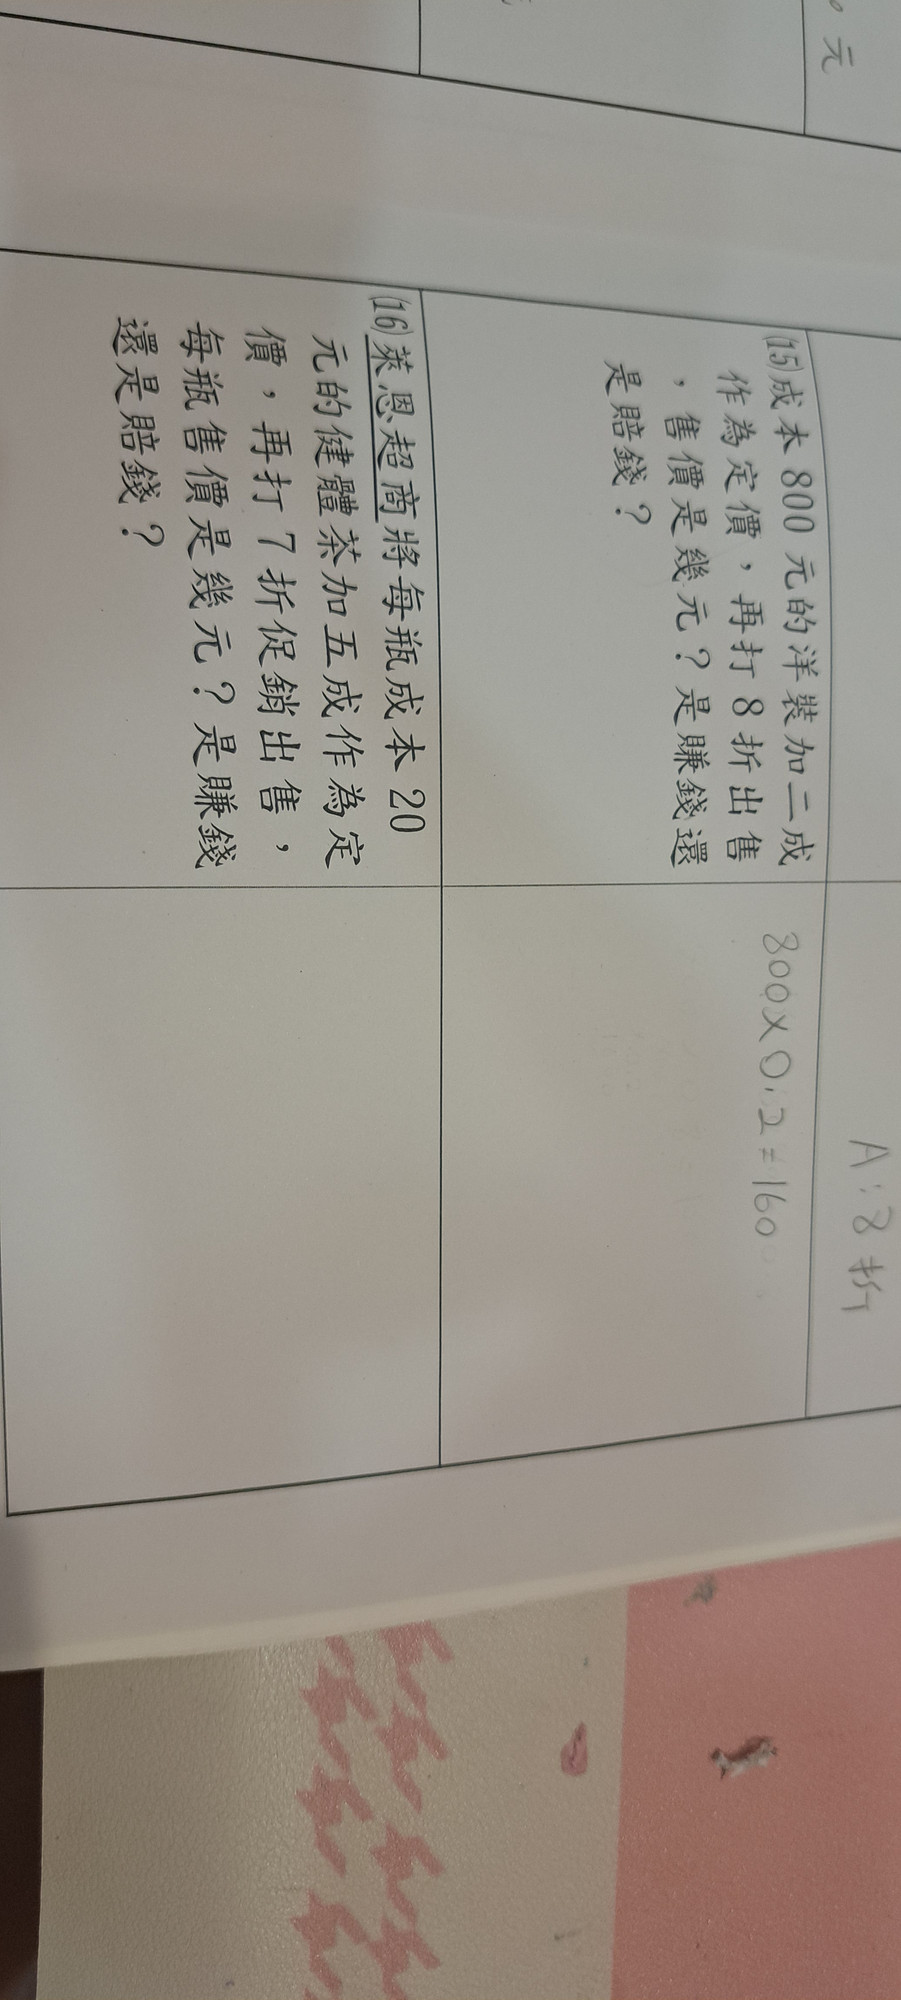 元
A:8折
⒂成本800元的洋裝加二成
作為定價，再打8折出售
，售價是幾元？是賺錢還
是賠錢？
800×0.2=160
⒃萊恩超商將每瓶成本20
元的健體茶加五成作為定
價，再打7折促銷出售，
每瓶售價是幾元？是賺錢
還是賠錢？